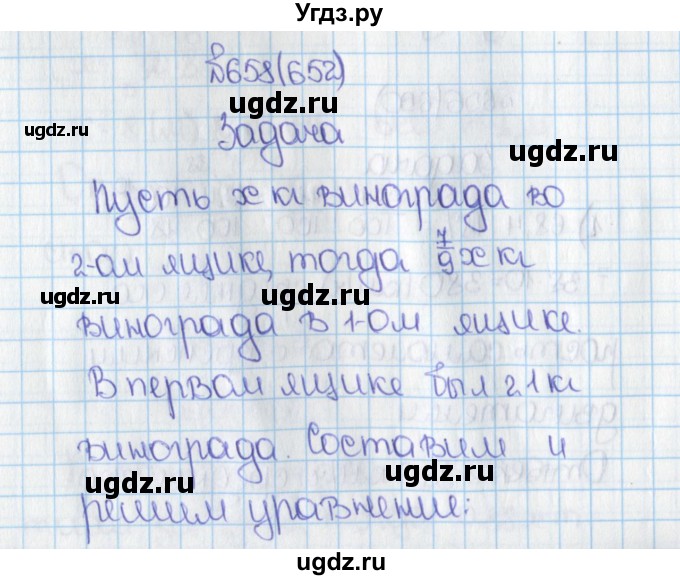 Угдз.ру
№658(652)
ugdz.ru
ugdz.ru
Задача
Пусть x кг винограда во
ugdz.ru
2-ом ящике, тогда 7/9 x кг
ugdz.ru
ugdz.ru
винограда в 1-ом ящике.
ugdz.ru
ugdz.ru
В первом ящике был 21 кг
ugdz.ru
винограда. Составим и
ugdz.ru
ugdz.ru
решим уравнение:
ugdz.ru